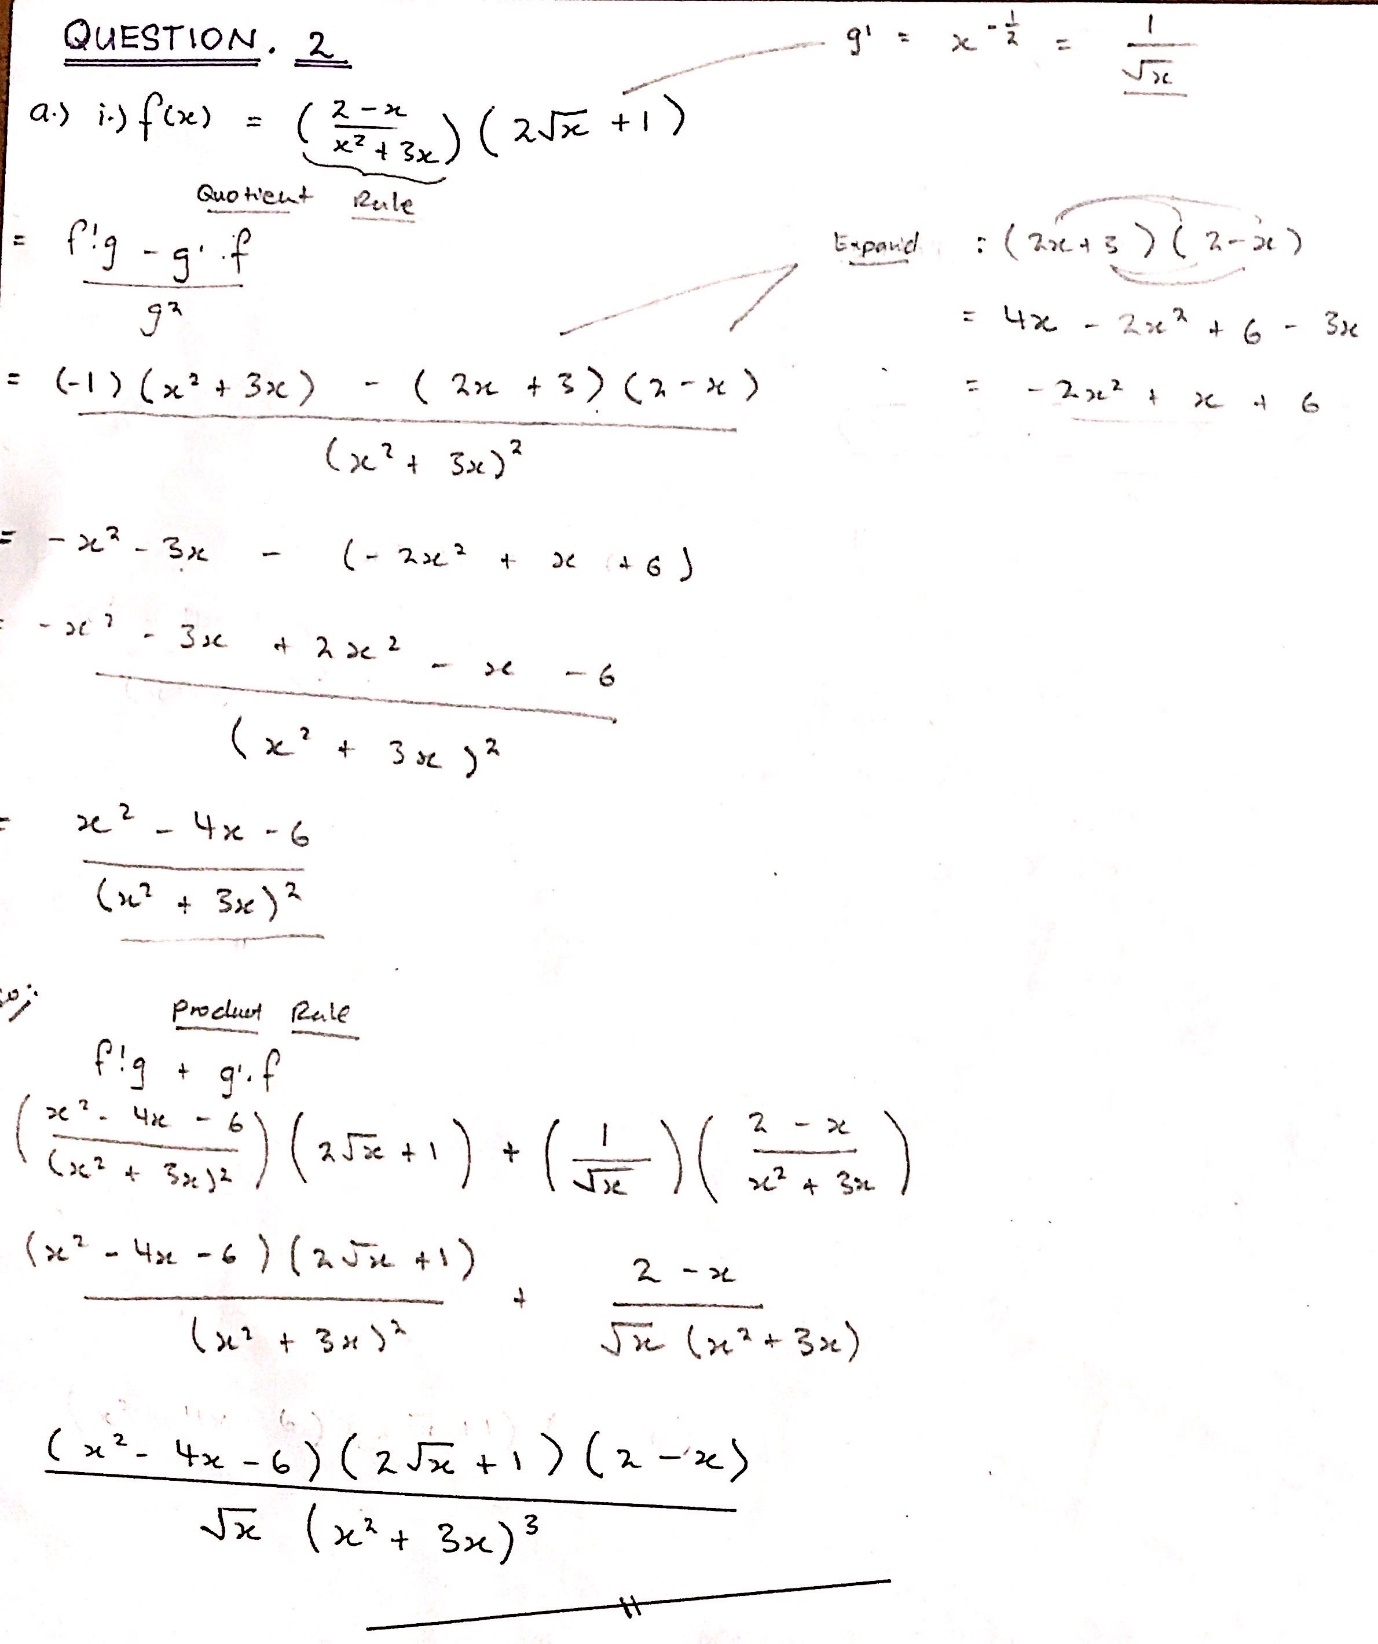 QUESTION. 2
g' = x^{-1/2} = 1/√x
a.) i.) f(x) = ((2-x)/(x²+3x)) (2√x +1)
Quotient Rule
= (f'g - g'.f)/g²
Expand : (2x+3)(2-x)
= 4x - 2x² + 6 - 3x
= -2x² + x + 6
= ((-1)(x²+3x) - (2x+3)(2-x))/(x²+3x)²
= -x² - 3x - (-2x² + x + 6)
= (-x² - 3x + 2x² - x - 6)/(x² + 3x)²
= (x² - 4x - 6)/(x² + 3x)²
so;
Product Rule
f'g + g'.f
((x² - 4x - 6)/(x² + 3x)²) (2√x + 1) + (1/√x) ((2 - x)/(x² + 3x))
(x² - 4x - 6)(2√x + 1)/(x² + 3x)² + (2 - x)/(√x (x² + 3x))
(x² - 4x - 6)(2√x + 1)(2 - x)/(√x (x² + 3x)³)